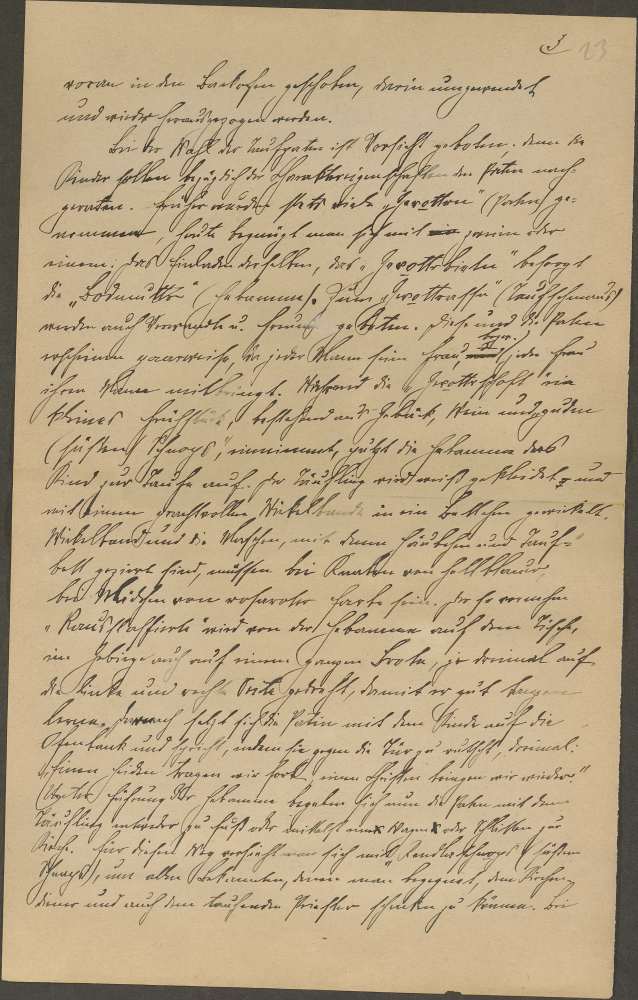 3 23
voran in den Backofen geschoben, darin umgewendet
und wieder herausgezogen werden.
Bei der Wahl der Taufpaten ist Vorsicht geboten, denn die
Kinder sollen bezüglich der Charaktereigenschaften den Paten nach-
geraten. Früher wurden stets viele „Gevotten" (Paten) ge-
nommen, heute begnügt man sich mit zweien oder
einem. Das Einladen derselben, das „Gevotterbieten" besorgt
die „Bodmutter" (Hebamme). Zum „Gevotteressen" (Taufschmaus)
werden auch Verwandte u. Freunde gebeten. Diese und die Paten
erscheinen paarweise, da jeder Mann seine Frau, bezw. jede Frau
ihren Mann mitbringt. Während die „Gevotterschaft" ein
kleines Frühstück, bestehend aus Gebäck, Wein und „guden
(süßen) Schnaps", einnimmt, putzt die Hebamme das
Kind zur Taufe auf. Der Täufling wird weiß gekleidet und
mit einem prachtvollen Wickelbande in ein Bettchen gewickelt.
Wickelband und die Maschen, mit denen Häubchen und Tauf-
bett geziert sind, müssen bei Knaben von hellblauer,
bei Mädchen von rosaroter Farbe sein. Der so vornehm
„Rausstaffierte" wird von der Hebamme auf dem Tische,
im Gebirge auch auf einem ganzen Brote, je dreimal auf
die linke und rechte Seite gedreht, damit er gut
lerne. Darnach setzt sich die Patin mit dem Kinde auf die
Ofenbank und spricht, indem sie gegen die Tür zu rutscht, dreimal:
„Einen Heiden tragen wir fort, einen Christen bringen wir wieder."
Unter Führung der Hebamme begeben sich nun die Paten mit dem
Täufling entweder zu Fuß oder mittelst Wagen oder Schlitten zur
Kirche. Für diesen Weg versieht man sich mit (süßem
Schnaps), um allen Bekannten, denen man begegnet, dem Kirchen-
diener und auch dem taufenden Priester schenken zu können. Bei